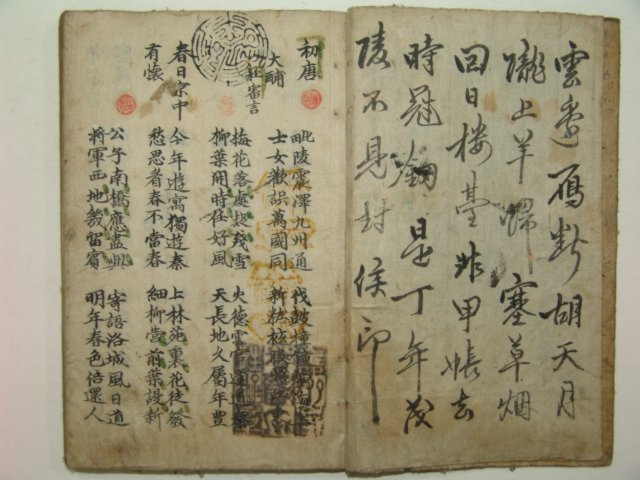 雲邊鴈斷胡天月
隴上羊歸塞草烟
回日楼臺非甲帳去
時冠劍是丁年茂
陵不見封侯印
初唐
大酺
杜審言
毗陵震澤九州通 伐鼓撞鐘
士女歡娛萬國同 新粧袨服照江東
梅花落處疑殘雪 火德雲官逢道泰
柳葉開時任好風 天長地久屬年豊
春日京中
有懷
今年遊寓獨遊秦 上林苑裏花徒發
愁思看春不當春 細柳營前葉謾新
公子南橋應盡興 寄語洛城風日道
將軍西地幾留賓 明年春色倍還人